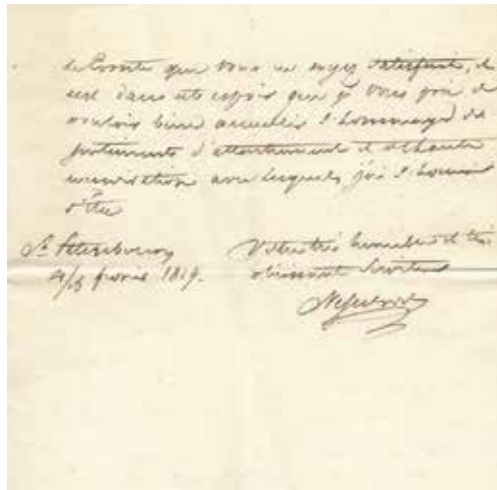 le Comte que vous en soyez satisfait, et
c'est dans cet espoir que je vous prie de
vouloir bien accueillir l'hommage des
sentiments d'attachement et de haute
consideration avec lesquels j'ai l'honneur
d'être
St. Petersbourg
fevrier 1819.
Votre très humble et très
obeissant Serviteur